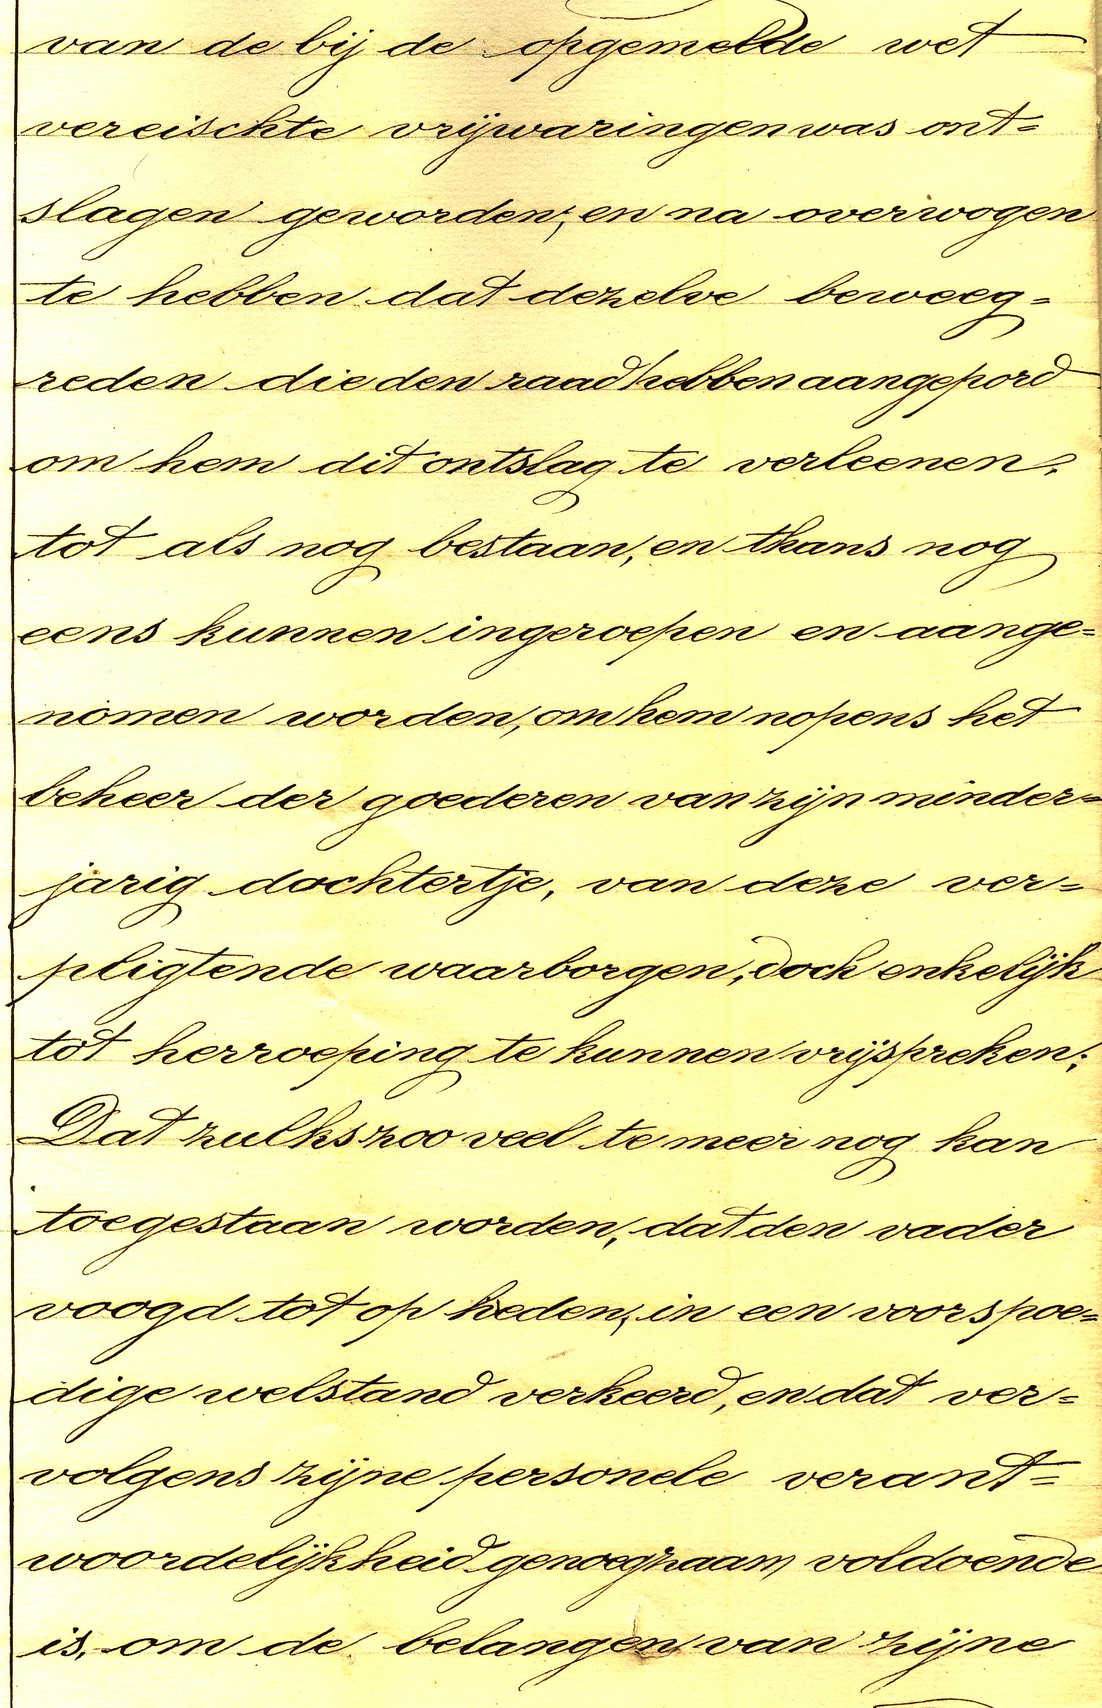 van de bij de opgemelde wet
vereischte vrijwaringen was ont=
slagen geworden; en na overwogen
te hebben dat dezelve beweeg=
reden die den raad hebben aangepord
om hem dit ontslag te verleenen,
tot als nog bestaan, en thans nog
eens kunnen ingeroepen en aange=
nomen worden, om hem nopens het
beheer der goederen van zijn minder=
jarig dochtertje, van deze ver=
pligtende waarborgen, doch enkelijk
tot herroeping te kunnen vrijspreken;
Dat zulks zoo veel te meer nog kan
toegestaan worden, dat den vader
voogd tot op heden, in een voorspoe=
dige welstand verkeerd, en dat ver=
volgens zijne personele verant=
woordelijkheid genoegzaam voldoende
is, om de belangen van zijne